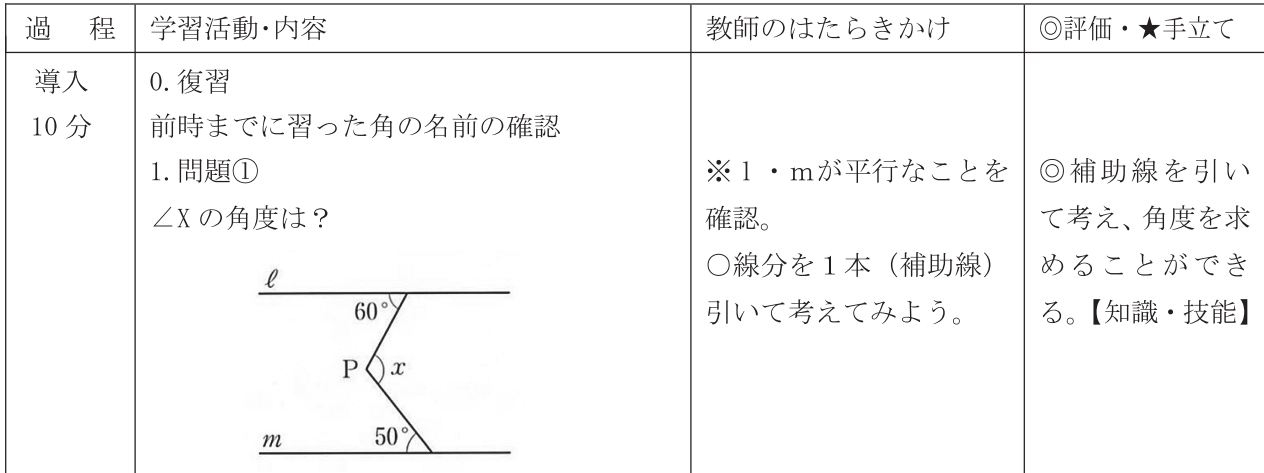 過　程
学習活動･内容
教師のはたらきかけ
◎評価・★手立て
導入
10 分
0.復習
前時までに習った角の名前の確認
1.問題①
∠X の角度は？
ℓ
60°
P
x
m
50°
※ｌ・ｍが平行なことを
確認。
○線分を１本（補助線）
引いて考えてみよう。
◎補助線を引い
て考え、角度を求
めることができ
る。【知識・技能】